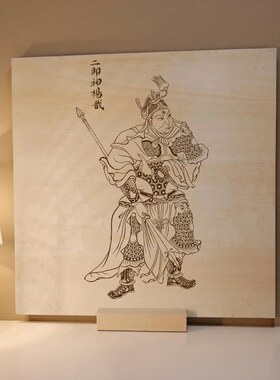 二郎神楊戩